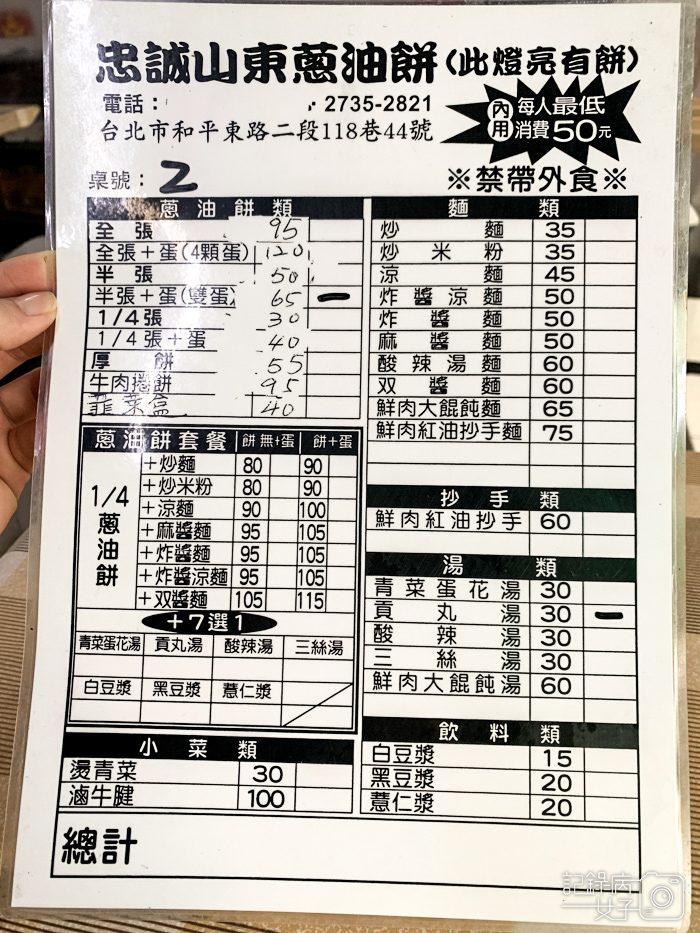 忠誠山東蔥油餅(此燈亮有餅)
電話： 2735-2821
台北市和平東路二段118巷44號
內用 每人最低消費50元
桌號：2
※禁帶外食※
蔥油餅類
全張 95
全張＋蛋(4顆蛋) 120
半張 50
半張＋蛋(雙蛋) 65 —
1/4張 30
1/4張＋蛋 40
厚餅 55
牛肉捲餅 95
韮菜盒 40
蔥油餅套餐 餅無+蛋 餅+蛋
1/4蔥油餅
＋炒麵 80 90
＋炒米粉 80 90
＋涼麵 90 100
＋麻醬麵 95 105
＋炸醬麵 95 105
＋炸醬涼麵 95 105
＋双醬麵 105 115
＋7選1
青菜蛋花湯 貢丸湯 酸辣湯 三絲湯
白豆漿 黑豆漿 薏仁漿
小菜類
燙青菜 30
滷牛腱 100
麵類
炒麵 35
炒米粉 35
涼麵 45
炸醬涼麵 50
炸醬麵 50
麻醬麵 50
酸辣湯麵 60
双醬麵 60
鮮肉大餛飩麵 65
鮮肉紅油抄手麵 75
抄手類
鮮肉紅油抄手 60
湯類
青菜蛋花湯 30
貢丸湯 30 —
酸辣湯 30
三絲湯 30
鮮肉大餛飩湯 60
飲料類
白豆漿 15
黑豆漿 20
薏仁漿 20
總計
記錄病女子